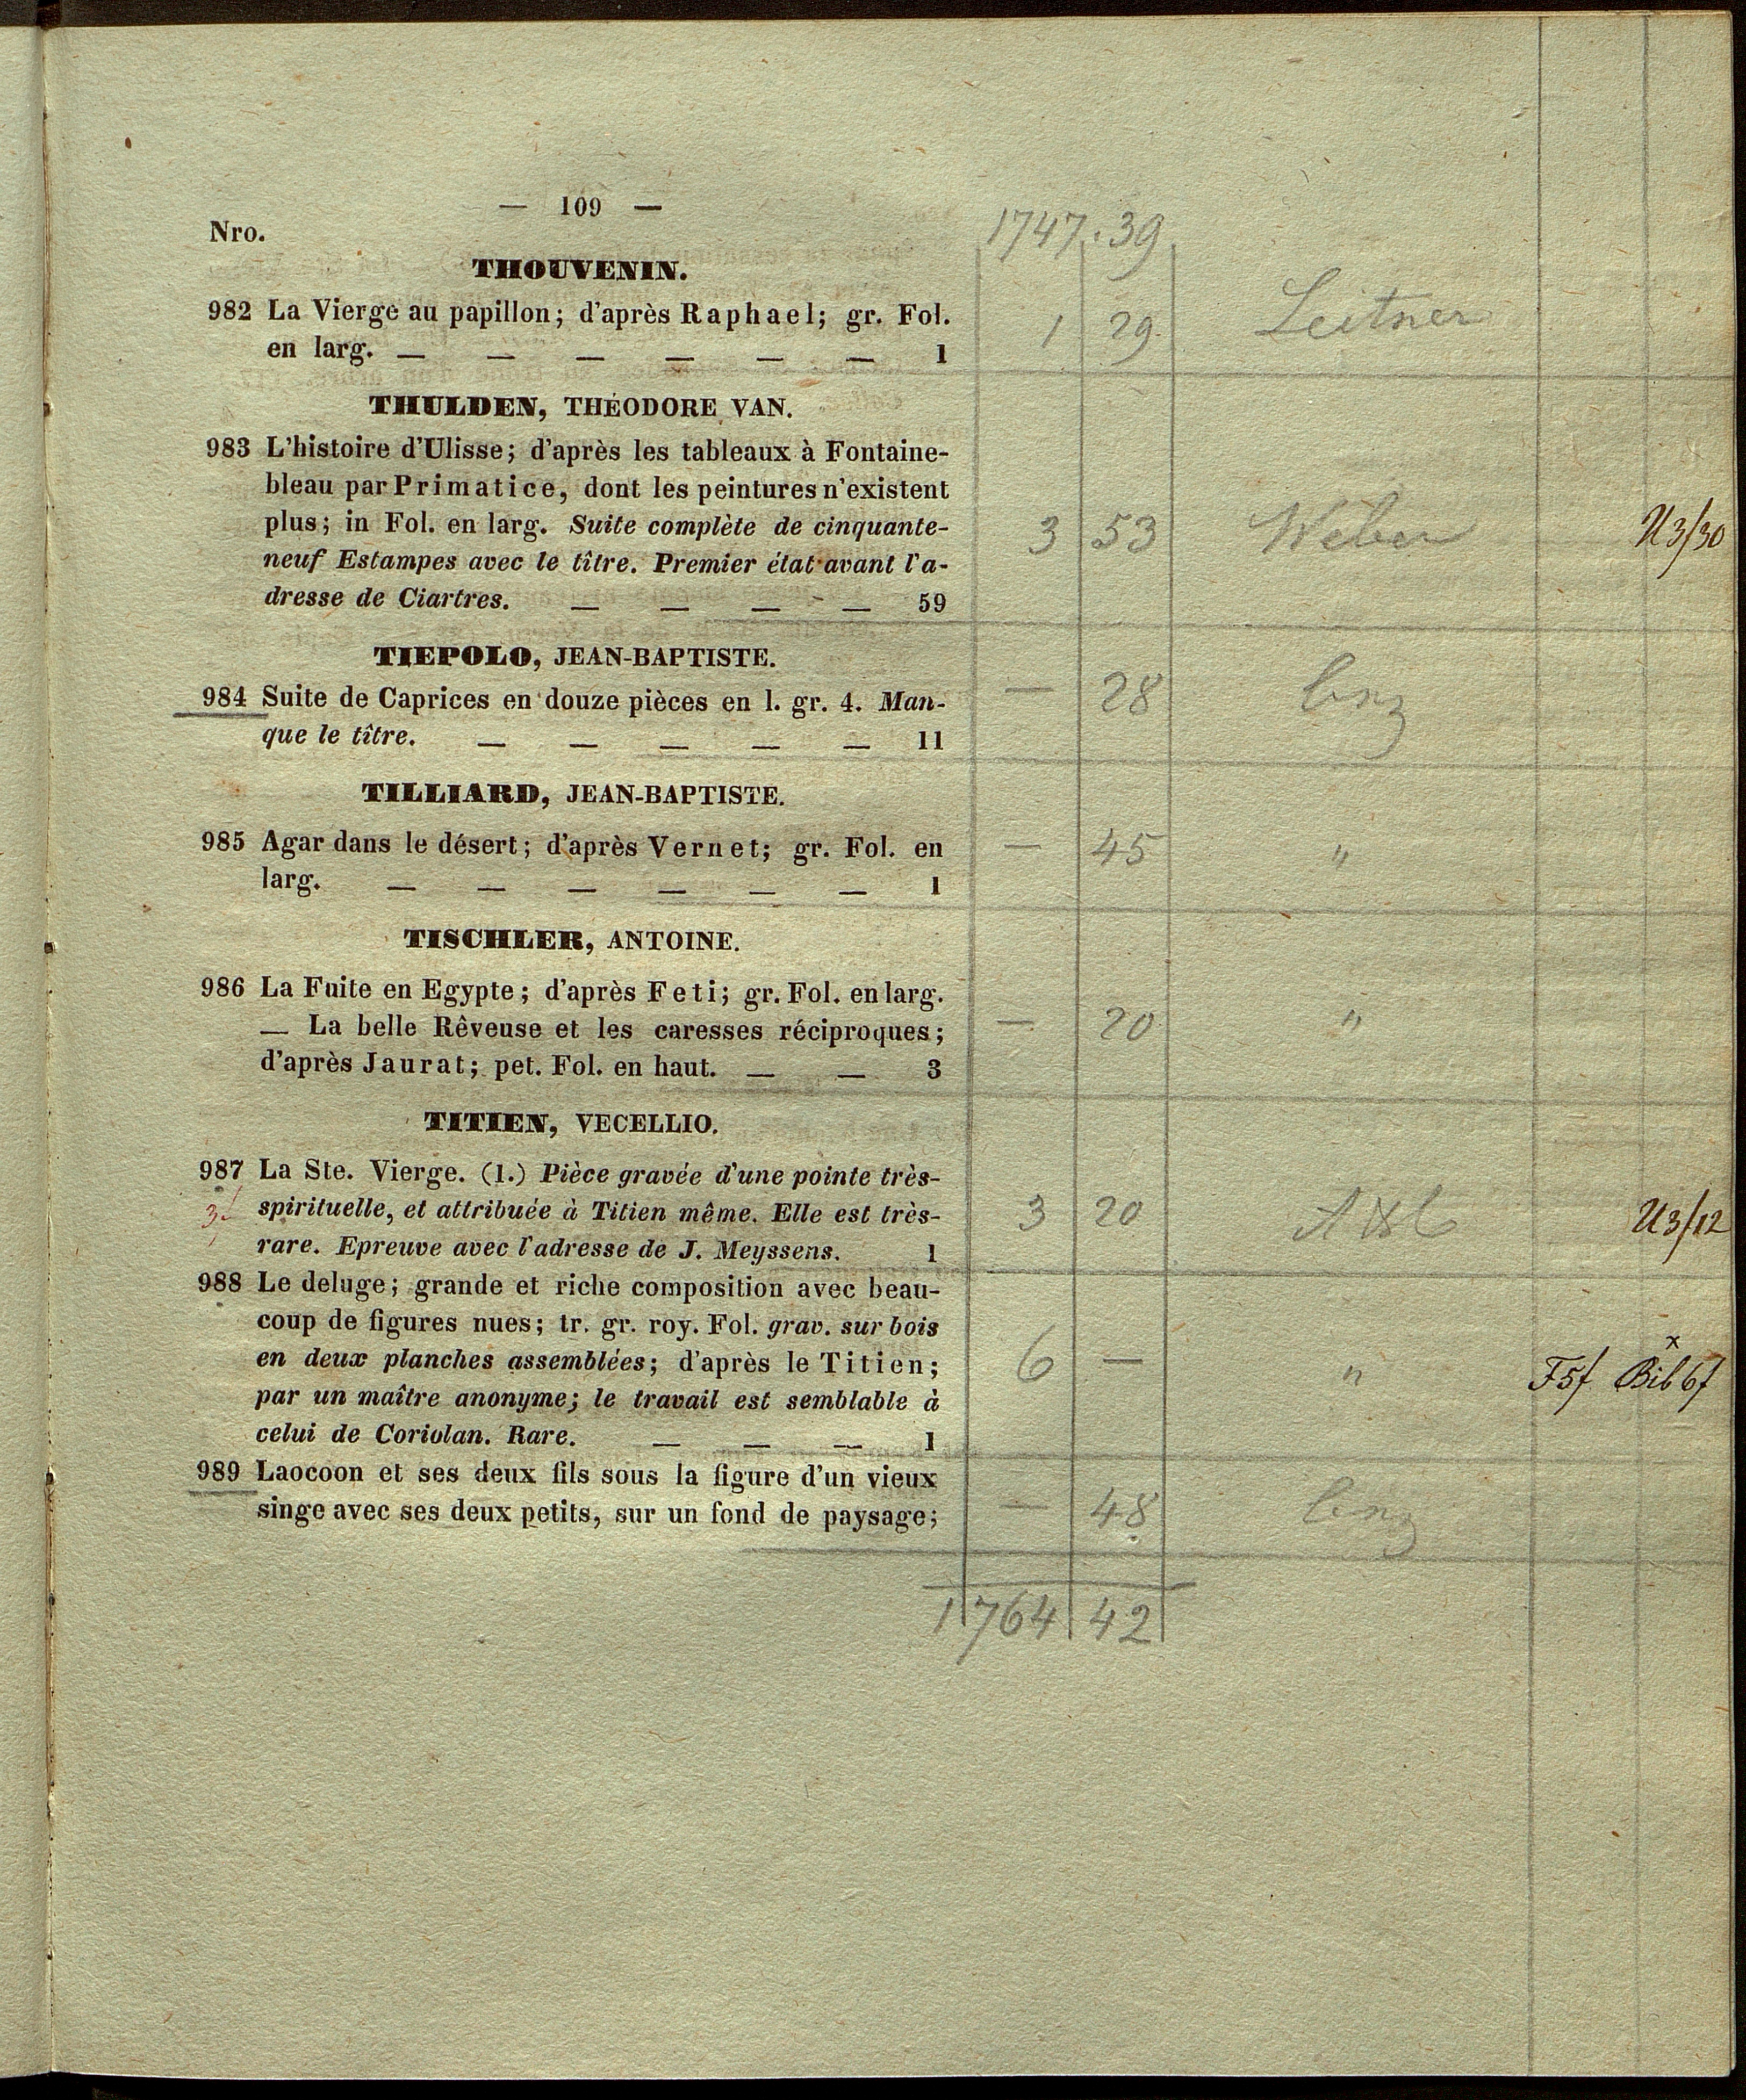 — 109 —
1747.39
Nro.
THOUVENIN.
982 La Vierge au papillon; d'après Raphael; gr. Fol.
en larg. — — — — — — 1
1 29 Leitner
THULDEN, THÉODORE VAN.
983 L'histoire d'Ulisse; d'après les tableaux à Fontaine-
bleau par Primatice, dont les peintures n'existent
plus; in Fol. en larg. Suite complète de cinquante-
neuf Estampes avec le tître. Premier état avant l'a-
dresse de Ciartres. — — — — 59
3 53 Weber U3/30
TIEPOLO, JEAN-BAPTISTE.
984 Suite de Caprices en douze pièces en l. gr. 4. Man-
que le tître. — — — — — 11
— 28
TILLIARD, JEAN-BAPTISTE.
985 Agar dans le désert; d'après Vernet; gr. Fol. en
larg. — — — — — — 1
— 45 "
TISCHLER, ANTOINE.
986 La Fuite en Egypte; d'après Feti; gr. Fol. en larg.
— La belle Rêveuse et les caresses réciproques;
d'après Jaurat; pet. Fol. en haut. — — 3
— 20 "
TITIEN, VECELLIO.
987 La Ste. Vierge. (1.) Pièce gravée d'une pointe très-
spirituelle, et attribuée à Titien même. Elle est très-
rare. Epreuve avec l'adresse de J. Meyssens. 1
3 20 U3/12
988 Le deluge; grande et riche composition avec beau-
coup de figures nues; tr. gr. roy. Fol. grav. sur bois
en deux planches assemblées; d'après le Titien;
par un maître anonyme; le travail est semblable à
celui de Coriolan. Rare. — — — 1
6 — " F5f Bib 6f
989 Laocoon et ses deux fils sous la figure d'un vieux
singe avec ses deux petits, sur un fond de paysage;
— 48
1764 42